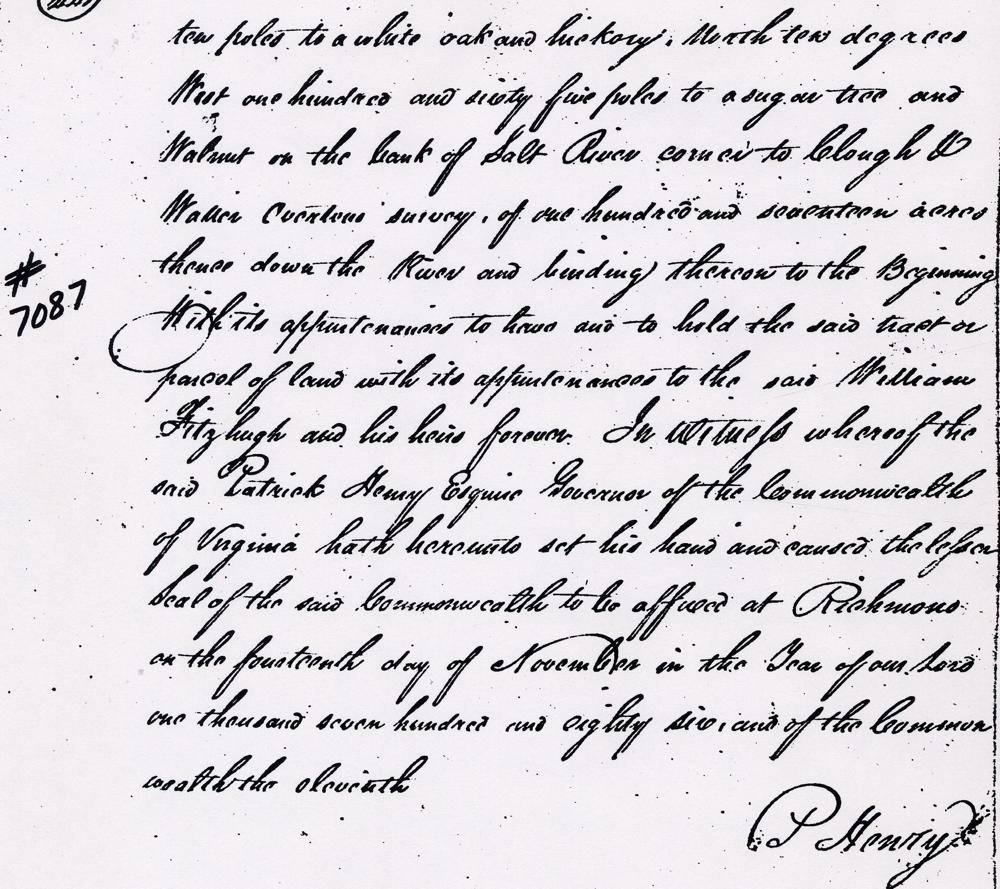 ten poles to a white oak and hickory, North ten degrees
West one hundred and sixty five poles to a sugar tree and
Walnut on the bank of Salt River corner to Clough &
Waller Overtons survey, of one hundred and seventeen acres
thence down the River and binding thereon to the Beginning
#
7087
With its appurtenances to have and to hold the said tract or
parcel of land with its appurtenances to the said William
Fitzhugh and his heirs forever. In Witness whereof the
said Patrick Henry Esquire Governor of the Commonwealth
of Virginia hath hereunto set his hand and caused the lesser
Seal of the said Commonwealth to be affixed at Richmond
on the fourteenth day of November in the Year of our Lord
one thousand seven hundred and eighty six, and of the Common
wealth the eleventh
P Henry